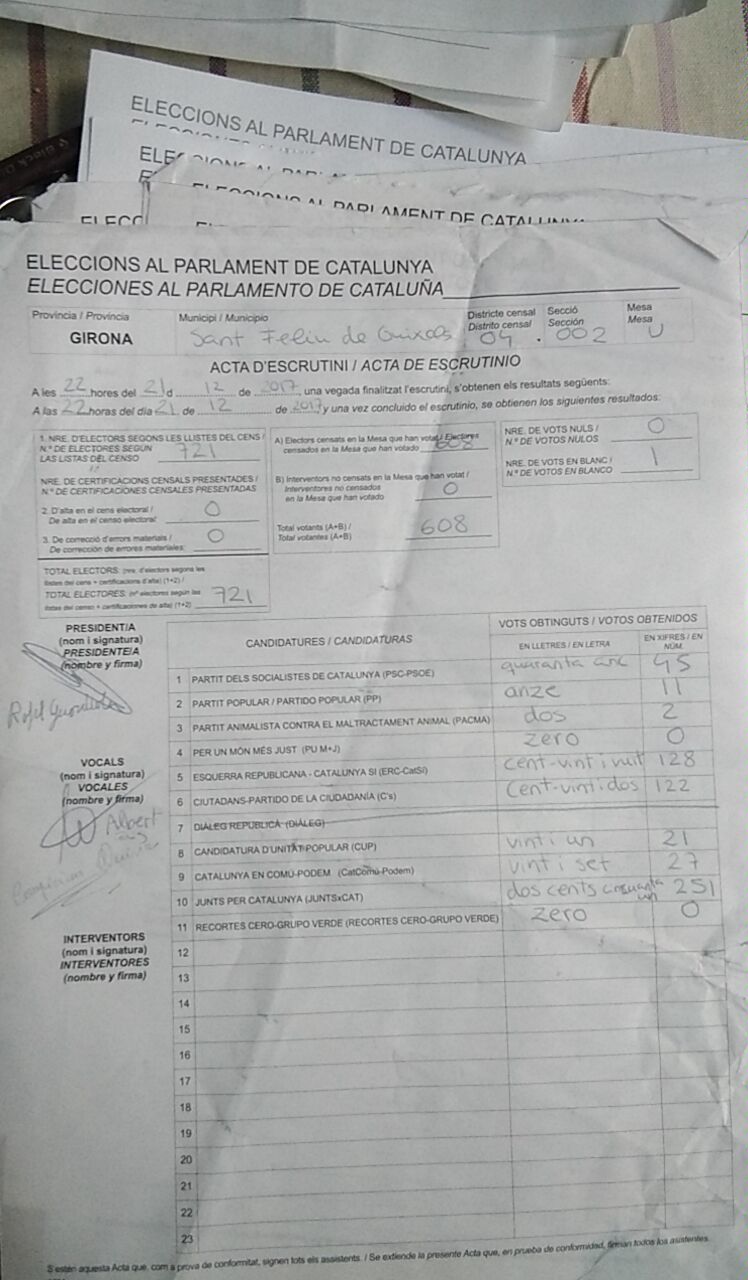 ELECCIONS AL PARLAMENT DE CATALUNYA
ELECCIONS AL PARLAMENT DE CATALUNYA
ELECCIONS AL PARLAMENT DE CATALUNYA
ELECCIONES AL PARLAMENTO DE CATALUÑA
Província / Provincia
Municipi / Municipio
Districte censal
Distrito censal
Secció
Sección
Mesa
Mesa
GIRONA
Sant Feliu de Guíxols
04 . 002 U
ACTA D'ESCRUTINI / ACTA DE ESCRUTINIO
A les 22 hores del 21 d 12 de 2017, una vegada finalitzat l'escrutini, s'obtenen els resultats següents:
A las 22 horas del día 21 de 12 de 2017 y una vez concluido el escrutinio, se obtienen los siguientes resultados:
1. NRE. D'ELECTORS SEGONS LES LLISTES DEL CENS /
N.º DE ELECTORES SEGÚN
LAS LISTAS DEL CENSO 721
NRE. DE CERTIFICACIONS CENSALS PRESENTADES /
N.º DE CERTIFICACIONES CENSALES PRESENTADAS
2. D'alta en el cens electoral /
De alta en el censo electoral: 0
3. De correcció d'errors materials /
De corrección de errores materiales: 0
TOTAL ELECTORS: (nre. d'electors segons les
llistes del cens + certificacions d'alta) (1+2) /
TOTAL ELECTORES: (nº electores según las
listas del censo + certificaciones de alta) (1+2) 721
A) Electors censats en la Mesa que han votat / Electores
censados en la Mesa que han votado 608
B) Interventors no censats en la Mesa que han votat /
Interventores no censados
en la Mesa que han votado 0
Total votants (A+B) /
Total votantes (A+B) 608
NRE. DE VOTS NULS /
N.º DE VOTOS NULOS 0
NRE. DE VOTS EN BLANC /
N.º DE VOTOS EN BLANCO 1
PRESIDENT/A
(nom i signatura)
PRESIDENTE/A
(nombre y firma)
VOCALS
(nom i signatura)
VOCALES
(nombre y firma)
Albert
INTERVENTORS
(nom i signatura)
INTERVENTORES
(nombre y firma)
CANDIDATURES / CANDIDATURAS
VOTS OBTINGUTS / VOTOS OBTENIDOS
EN LLETRES / EN LETRA
EN XIFRES / EN NÚM.
1 PARTIT DELS SOCIALISTES DE CATALUNYA (PSC-PSOE) quaranta cinc 45
2 PARTIT POPULAR / PARTIDO POPULAR (PP) onze 11
3 PARTIT ANIMALISTA CONTRA EL MALTRACTAMENT ANIMAL (PACMA) dos 2
4 PER UN MÓN MÉS JUST (PU M+J) zero 0
5 ESQUERRA REPUBLICANA - CATALUNYA SÍ (ERC-CatSí) cent-vint i vuit 128
6 CIUTADANS-PARTIDO DE LA CIUDADANÍA (C's) Cent-vint i dos 122
7 DIÀLEG REPUBLICÀ (DIÀLEG)
8 CANDIDATURA D'UNITAT POPULAR (CUP) vint i un 21
9 CATALUNYA EN COMÚ-PODEM (CatComú-Podem) vint i set 27
10 JUNTS PER CATALUNYA (JUNTSxCAT) dos cents cinquanta un 251
11 RECORTES CERO-GRUPO VERDE (RECORTES CERO-GRUPO VERDE) zero 0
12
13
14
15
16
17
18
19
20
21
22
23
S'estén aquesta Acta que, com a prova de conformitat, signen tots els assistents. / Se extiende la presente Acta que, en prueba de conformidad, firman todos los asistentes.